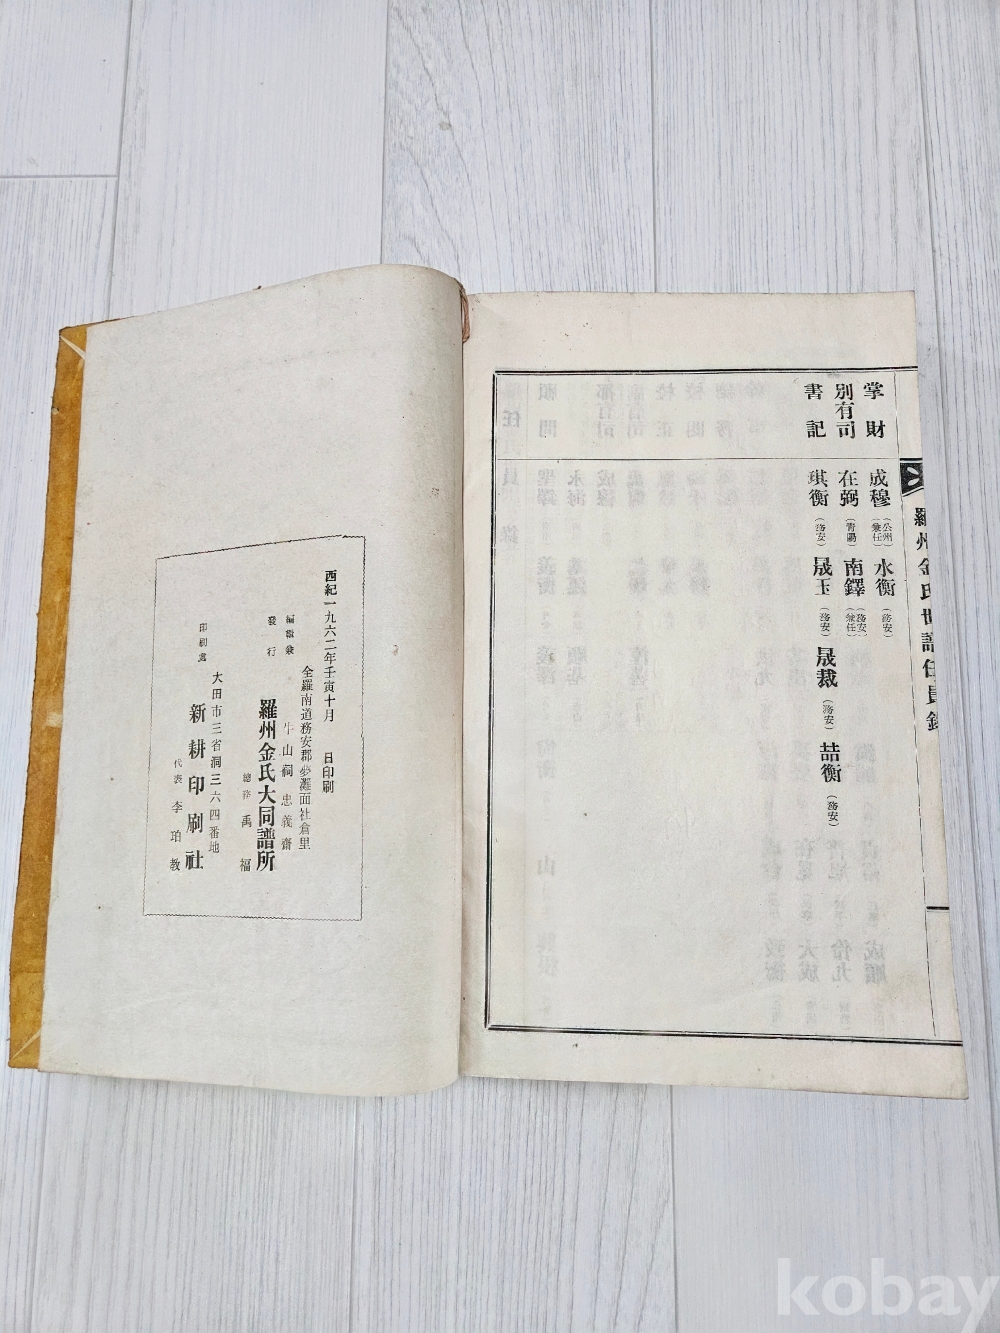 羅州金氏世譜任員錄
掌財 成穆（公州兼任） 水衡（務安）
別有司 在弼（青陽） 南鐸（務安兼任）
書記 琪衡（務安） 晟玉（務安） 晟裁（務安） 喆衡（務安）
西紀一九六二年壬寅十月 日印刷
全羅南道務安郡夢灘面社倉里
編輯兼 牛山祠忠義齋
發行 羅州金氏大同譜所
總務 禹福
大田市三省洞三六四番地
印刷處 新耕印刷社
代表 李珀教
kobay